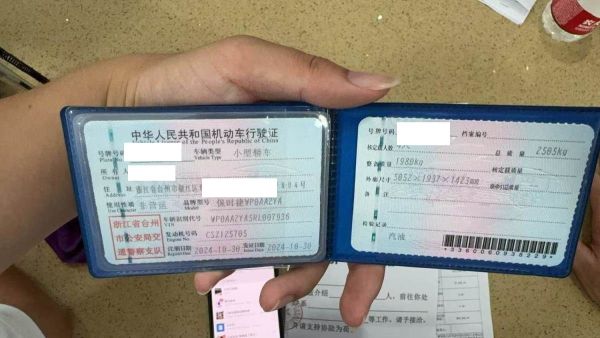 中华人民共和国机动车行驶证
Vehicle License of the People's Republic of China
号牌号码
Plate No.
车辆类型
Vehicle Type
小型轿车
所有人
Owner
住址
浙江省台州市椒江区
使用性质
Use Character
非营运
品牌型号
Model
保时捷WP0AA2YA
浙江省台州
市公安局交
通警察支队
车辆识别代号
VIN
发动机号码
Engine No.
CSZ125705
注册日期
Register Date
2024-10-30
发证日期
Issue Date
2024-10-30
号牌号码
档案编号
核定载人数
4人
总质量
2505kg
整备质量
1980kg
核定载质量
外廓尺寸
5052×1937×1423mm
准牵引总质量
备注
检验记录
汽油
人，前往你处
等工作，请予接洽，
请支持协助为荷